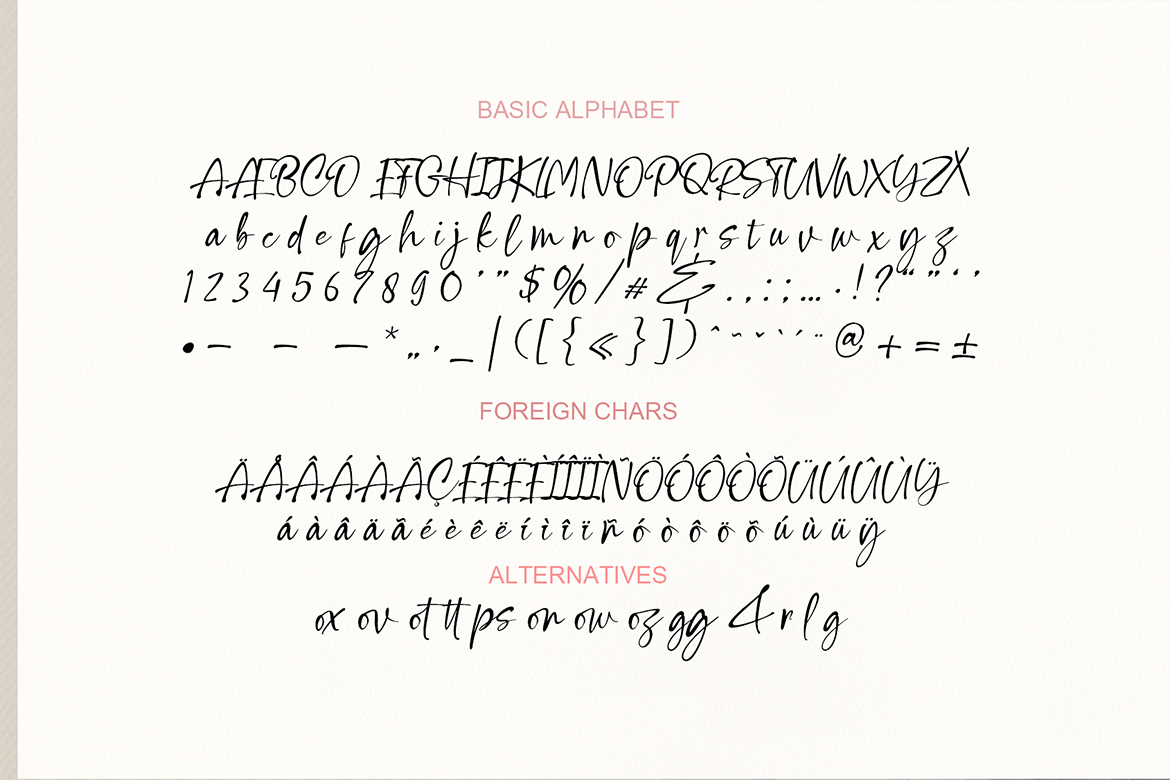 BASIC ALPHABET
AÆBCD EFGHIJKLMNOPQRSTUVWXYZX
a b c d e f g h i j k l m n o p q r s t u v w x y z
1 2 3 4 5 6 7 8 9 0 ' " $ % / # & . , : ; … · ! ? “ ” ‘ ’
• – – — * „ · _ | ( [ { « } ] ) ˆ ˜ ˇ ` ´ ¨ @ + = ±
FOREIGN CHARS
ÄÅÂÁÀÃÇÉÊËÈÍÎÏÌÑÖÓÔÒÕÜÚÛÙŸ
á à â ä ã é è ê ë í ì î ï ñ ó ò ô ö õ ú ù ü ÿ
ALTERNATIVES
ox ov ot tt ps on ow oz gg & r l g